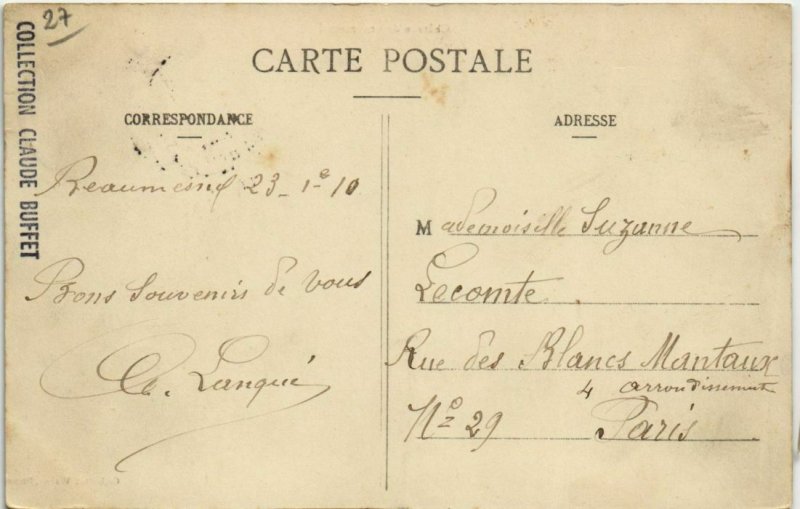 27
COLLECTION CLAUDE BUFFET
CARTE POSTALE
CORRESPONDANCE
Beaumesnil 23_1-e 10
Bons Souvenirs de vous
Lanqué
ADRESSE
Mademoiselle Suzanne
Lecomte
Rue des Blancs Mantaux
4 arrondissement
No 29 Paris